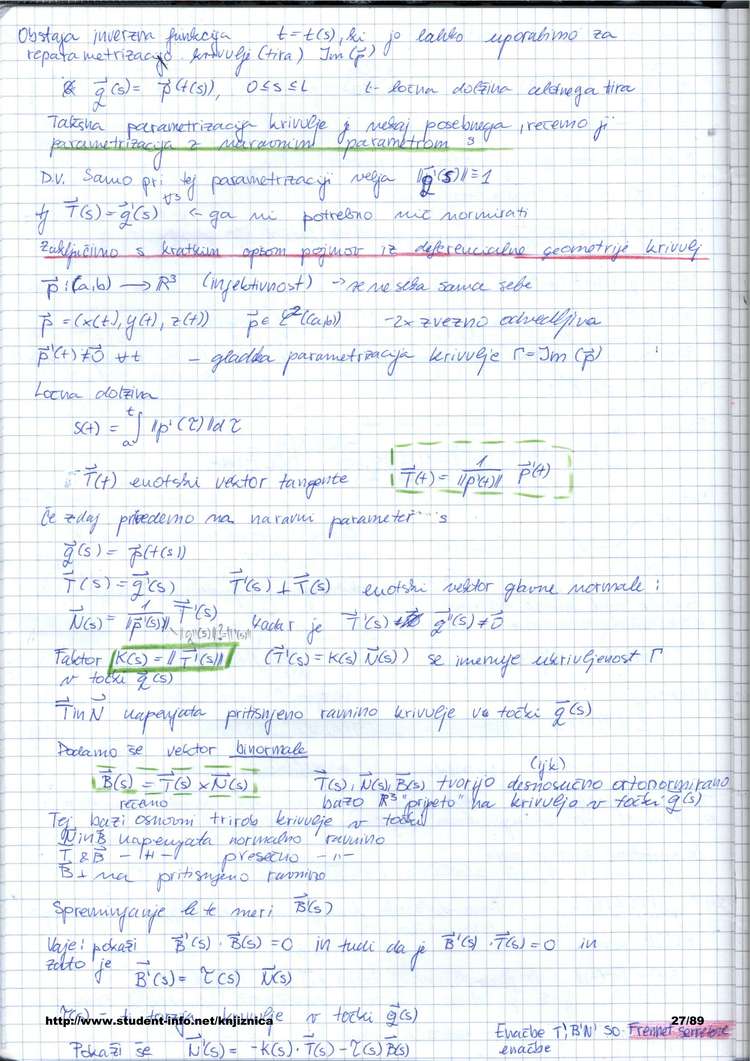 Obstaja inverzna funkcija t = t(s), ki jo lahko uporabimo za
reparametrizacijo krivulje (tira) Im(p⃗)
q⃗(s) = p⃗(t(s)), 0≤s≤L L - ločna dolžina celotnega tira
Takšna parametrizacija krivulje je nekaj posebnega, rečemo ji
parametrizacija z naravnim parametrom s
D.V. Samo pri tej parametrizaciji velja ||q⃗'(s)|| ≡ 1
∀s
tj T⃗(s) = q⃗'(s) ← ga ni potrebno nič normirati
Zaključimo s kratkim opisom pojmov iz diferencialne geometrije krivulj
p⃗ : (a,b) → R³ (injektivnost) → se ne seka sama sebe
p⃗ = (x(t), y(t), z(t)) p⃗ ∈ C²((a,b)) - 2x zvezno odvedljiva
p⃗'(t) ≠ 0⃗ ∀t - gladka parametrizacija krivulje Γ = Im(p⃗)
Ločna dolžina
s(t) = ∫ₐᵗ ||p'(τ)|| dτ
- T⃗(t) enotski vektor tangente T⃗(t) = 1/||p'(t)|| p⃗'(t)
Če zdaj preidemo na naravni parameter s
q⃗(s) = p⃗(t(s))
T⃗(s) = q⃗'(s) T⃗'(s) ⊥ T⃗(s) enotski vektor glavne normale :
N⃗(s) = 1/||p⃗'(s)|| T⃗'(s) kadar je T⃗'(s) q⃗''(s) ≠ 0⃗
Faktor K(s) = ||T⃗'(s)|| (T⃗'(s) = K(s) N⃗(s)) se imenuje ukrivljenost Γ
v točki q⃗(s)
T⃗ in N⃗ napenjata pritisnjeno ravnino krivulje v točki q⃗(s)
Dodamo še vektor binormale
(ijk)
B⃗(s) = T⃗(s) × N⃗(s) T⃗(s), N⃗(s), B⃗(s) tvorijo desnosučno ortonormirano
rečemo bazo R³ "pripeto" na krivuljo v točki q⃗(s)
Tej bazi osnovni trirob krivulje v točki
N⃗ in B⃗ napenjata normalno ravnino
T⃗ & B⃗ -11- presečno -11-
B⃗ ⊥ na pritisnjeno ravnino
Spreminjanje le te meri B⃗'(s)
Vaje: pokaži B⃗'(s) · B⃗(s) = 0 in tudi da je B⃗'(s) · T⃗(s) = 0 in
zato je
B⃗'(s) = τ(s) N⃗(s)
τ(s) - krivulje v točki q⃗(s)
http://www.student-info.net/knjiznica 27/89
Pokaži še N⃗'(s) = -K(s) · T⃗(s) - τ(s) B⃗(s)
Enačbe T', B' N' so Frennet
enačbe